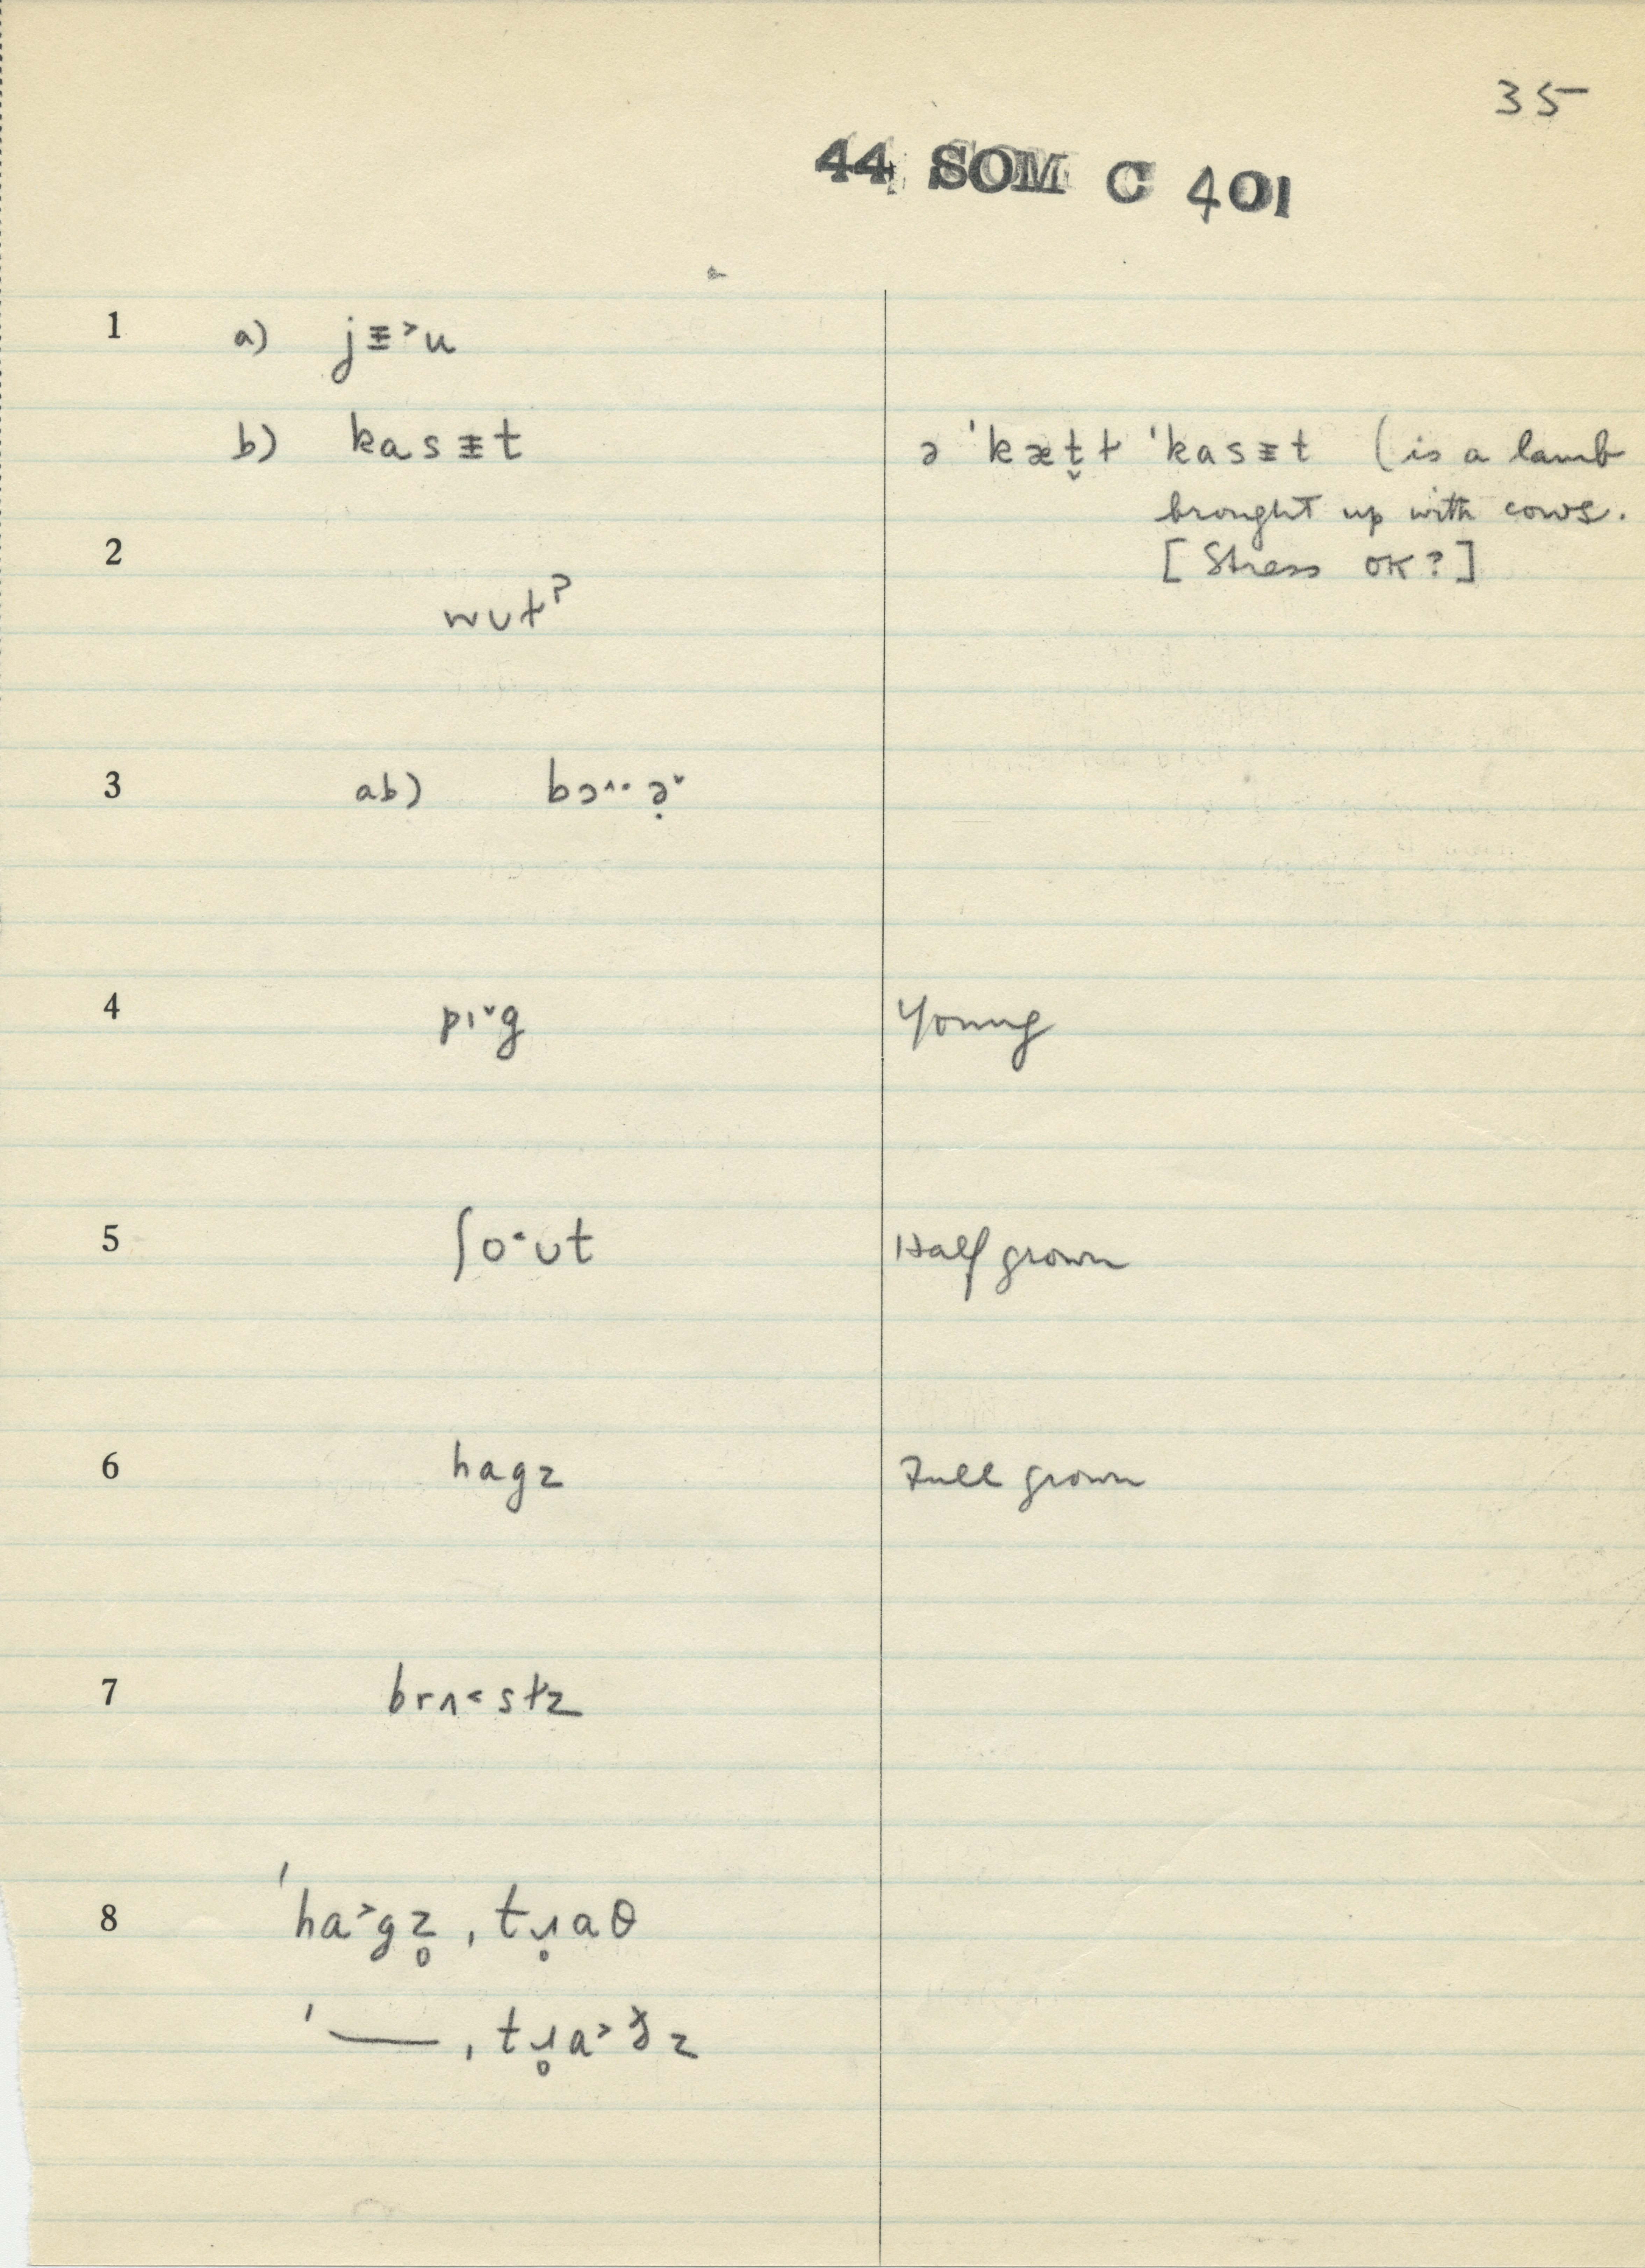 35
44 SOM C 401
1 a) jᵻ˃u
b) kasᵻt ə ˈkæt̬ɫ ˈkasᵻt (is a lamb
brought up with cows.
2 [Stress OK?]
wʊtˀ
3 ab) bɔ^·· ə̣ˇ
4 pɪˇg Young
5 ʃo·ʊt Half grown
6 hagz Full grown
7 brʌ˂stz
8 ˈha˃gz̥ ˌtɹ̥aθ
ˈ— ˌtɹ̥a˃ðz